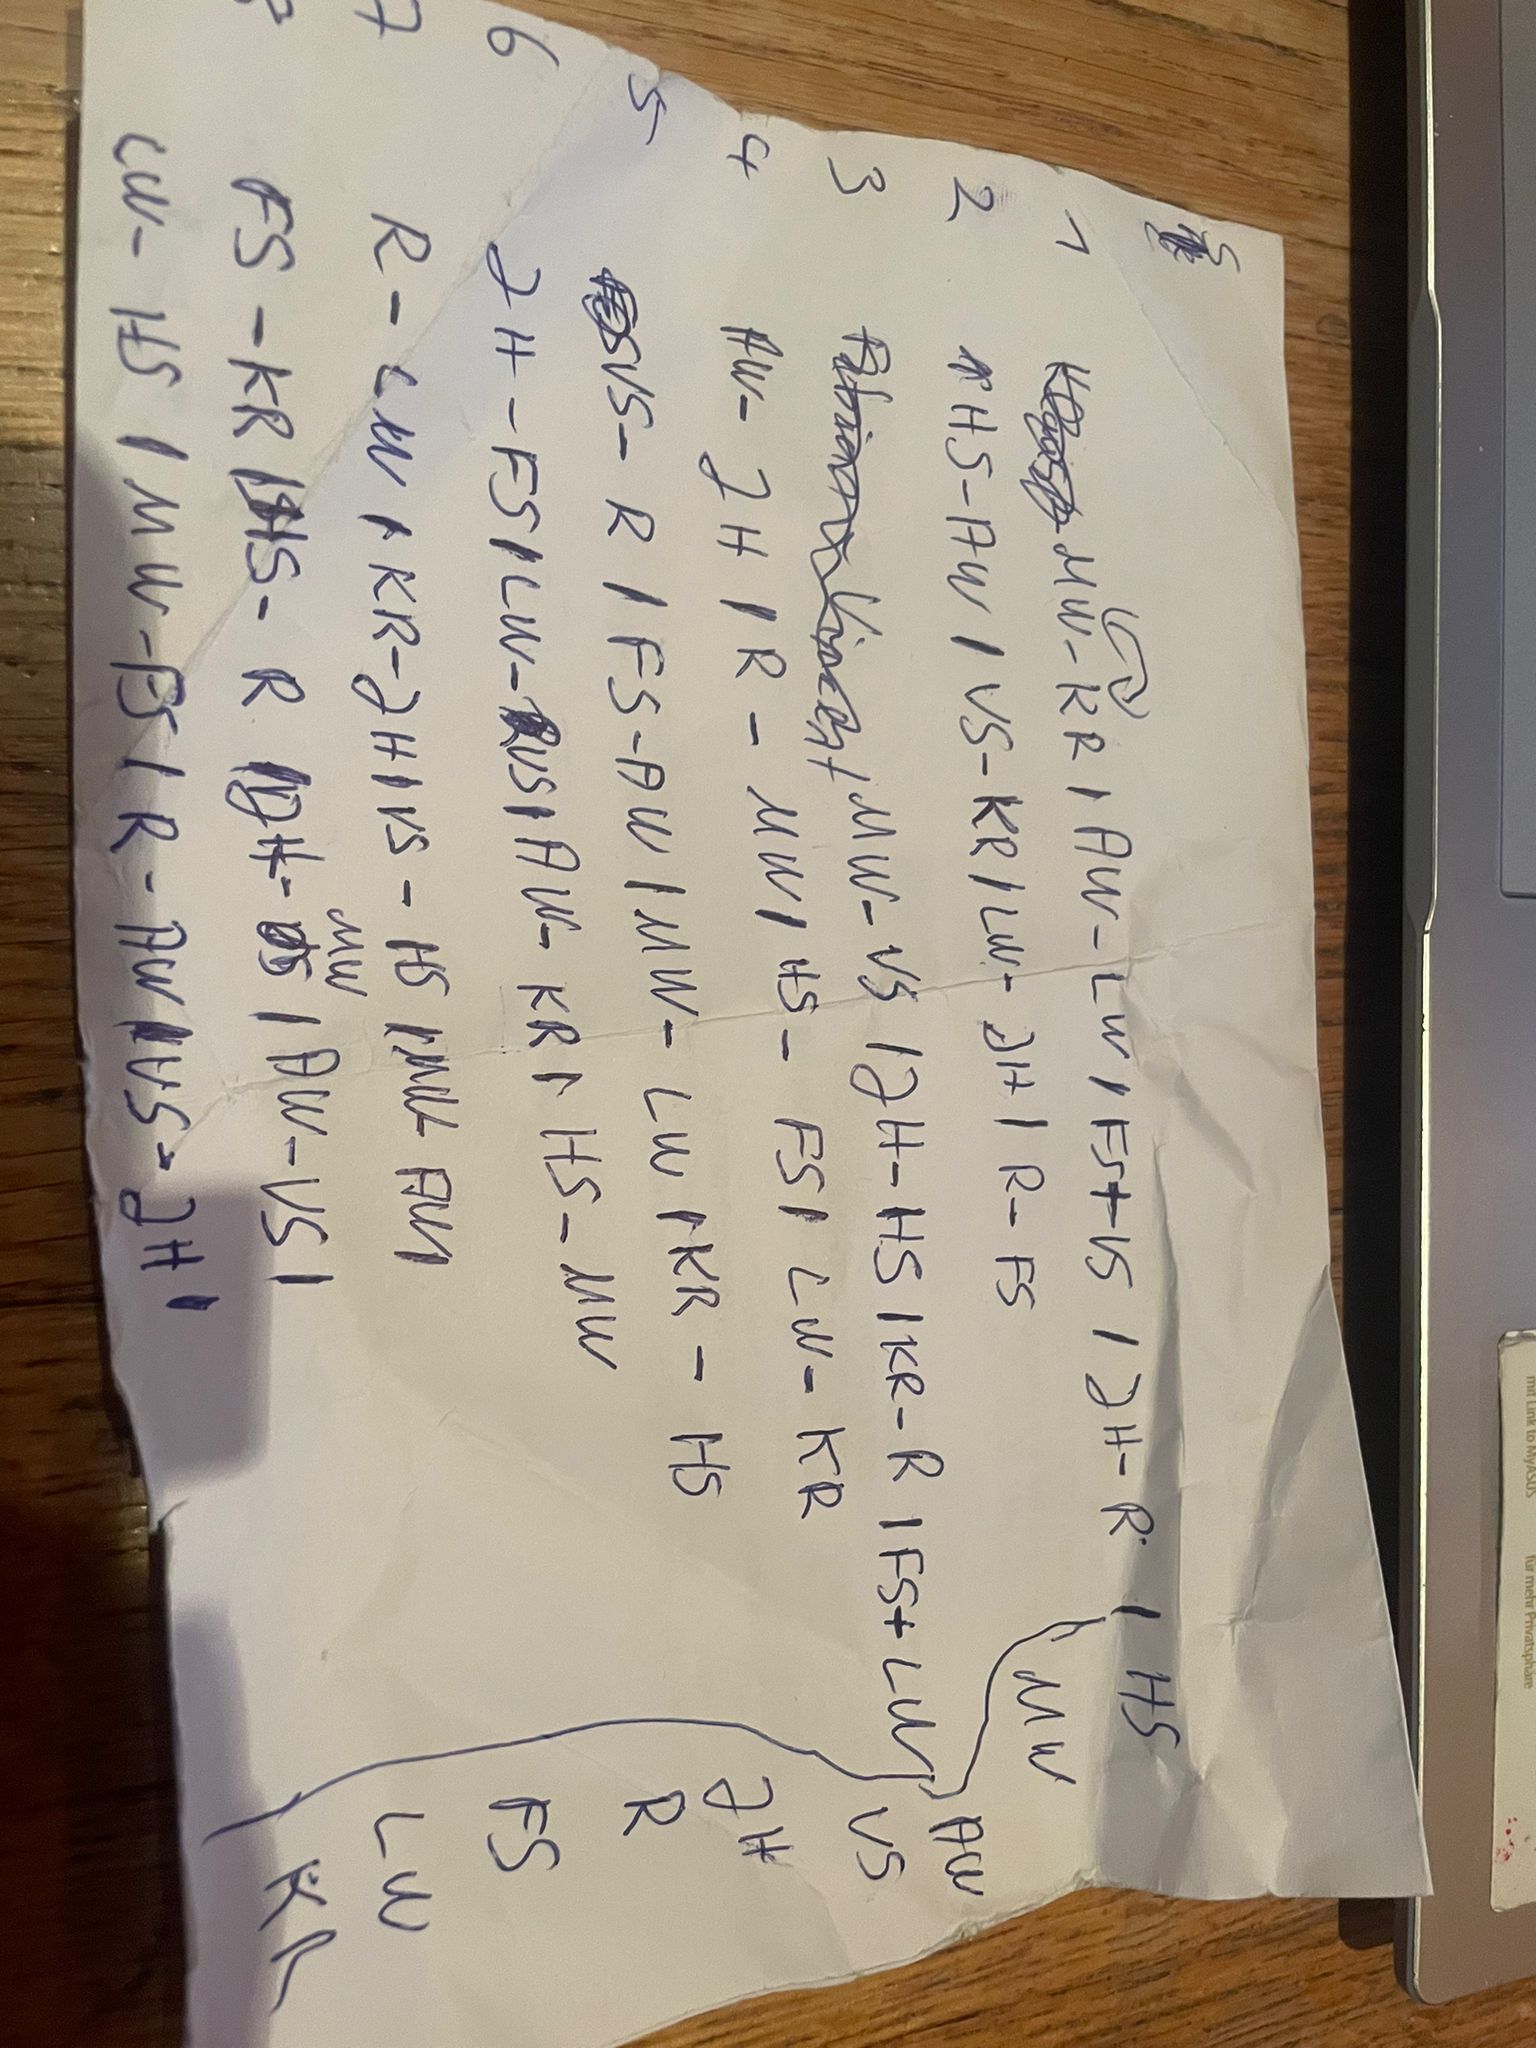 1 MW-KR | AW-LW | FS+VS | JH-R | HS
2 HS-AW | VS-KR | LW-JH | R-FS MW
3 MW-VS | JH-HS | KR-R | FS+LW AW
4 AW-JH | R-MW | HS-FS | LW-KR VS
5 VS-R | FS-AW | MW-LW | KR-HS JH
R
6 JH-FS | LW-VS | AW-KR | HS-MW FS
7 R-LW | KR-JH | VS-HS | AW LW
MW
FS-KR | HS-R | JH- | AW-VS | KR
LW-HS | MW-FS | R-AW | VS-JH |
mit Link to MyASUS für mehr Privatsphäre